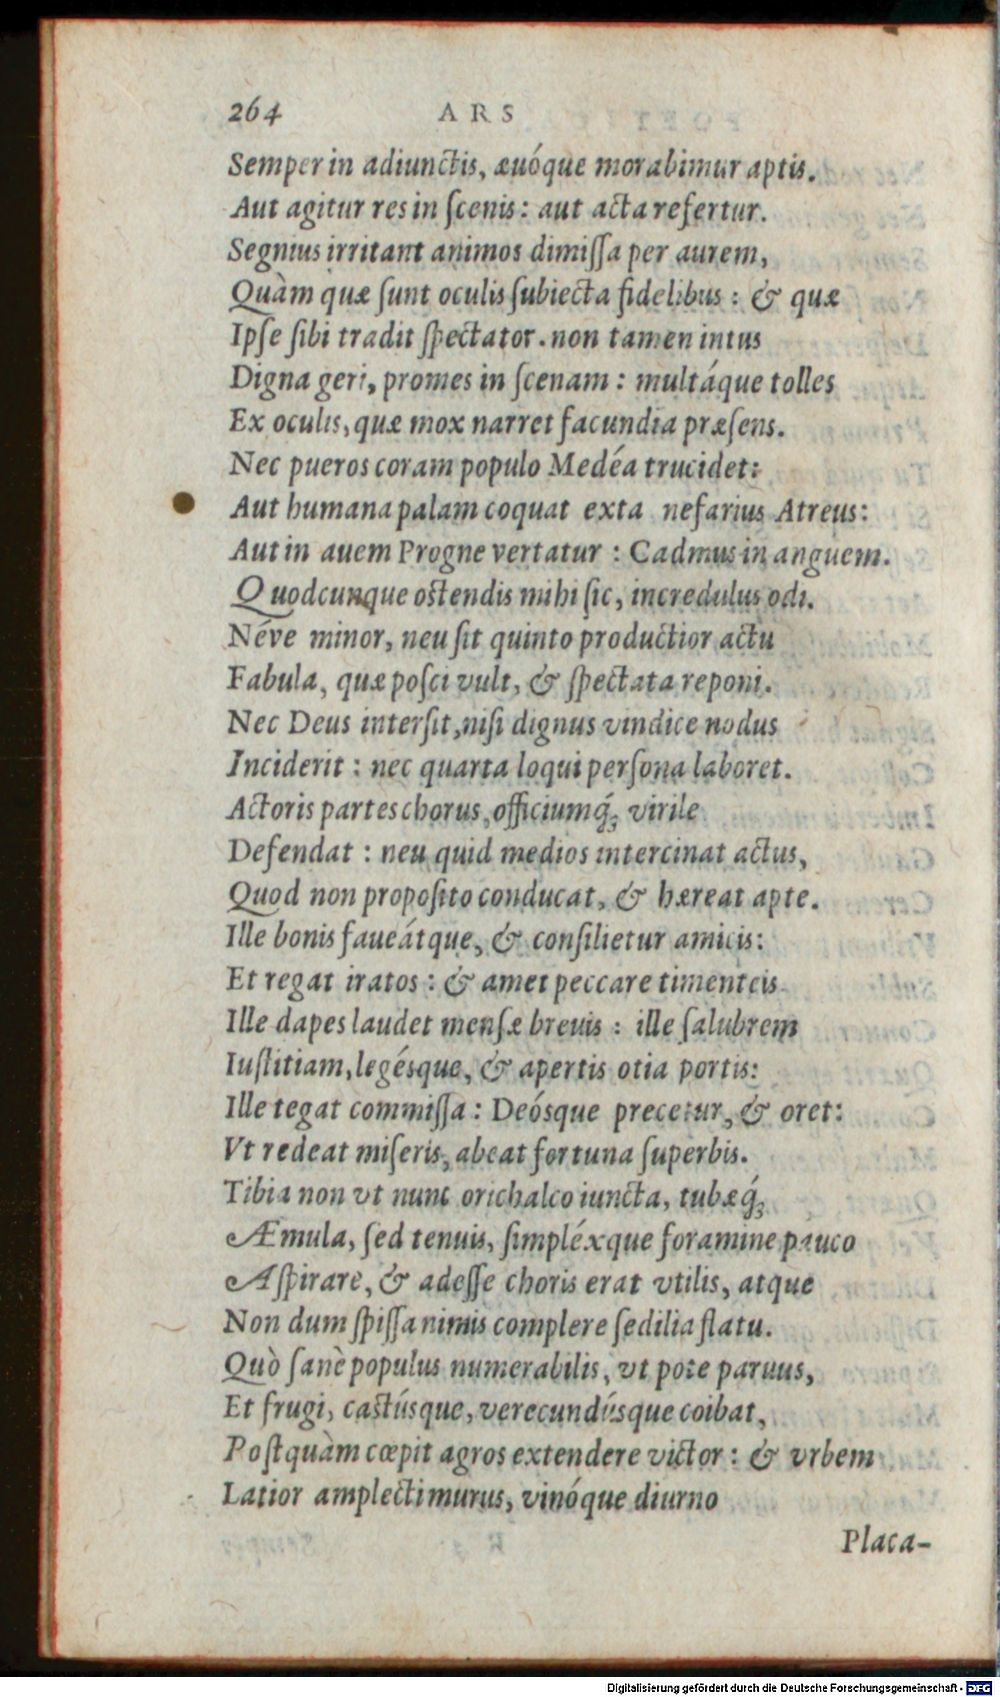 264 ARS
Semper in adiunctis, æuóque morabimur aptis.
Aut agitur res in ſcenis: aut acta refertur.
Segnius irritant animos dimiſſa per aurem,
Quàm quæ ſunt oculis ſubiecta fidelibus: & quæ
Ipſe ſibi tradit ſpectator. non tamen intus
Digna geri, promes in ſcenam: multáque tolles
Ex oculis, quæ mox narret facundia præſens.
Nec pueros coram populo Medéa trucidet:
Aut humana palam coquat exta nefarius Atreus:
Aut in auem Progne vertatur: Cadmus in anguem.
Quodcunque oſtendis mihi ſic, incredulus odi.
Néve minor, neu ſit quinto productior actu
Fabula, quæ poſci vult, & ſpectata reponi.
Nec Deus interſit, niſi dignus vindice nodus
Inciderit: nec quarta loqui perſona laboret.
Actoris partes chorus, officiumq́; virile
Defendat: neu quid medios intercinat actus,
Quod non propoſito conducat, & hæreat apte.
Ille bonis faueátque, & conſilietur amicis:
Et regat iratos: & amet peccare timenteis.
Ille dapes laudet menſæ breuis: ille ſalubrem
Iuſtitiam, legésque, & apertis otia portis:
Ille tegat commiſſa: Deósque precetur, & oret:
Vt redeat miſeris, abeat fortuna ſuperbis.
Tibia non vt nunc orichalco iuncta, tubæq́;
Æmula, ſed tenuis, ſimpléxque foramine pauco
Aſpirare, & adeſſe choris erat vtilis, atque
Non dum ſpiſſa nimis complere ſedilia flatu.
Quò ſanè populus numerabilis, vt pote paruus,
Et frugi, caſtúsque, verecundúsque coibat,
Poſtquàm cœpit agros extendere victor: & vrbem
Latior amplecti murus, vinóque diurno
Placa-
Digitalisierung gefördert durch die Deutsche Forschungsgemeinschaft - DFG